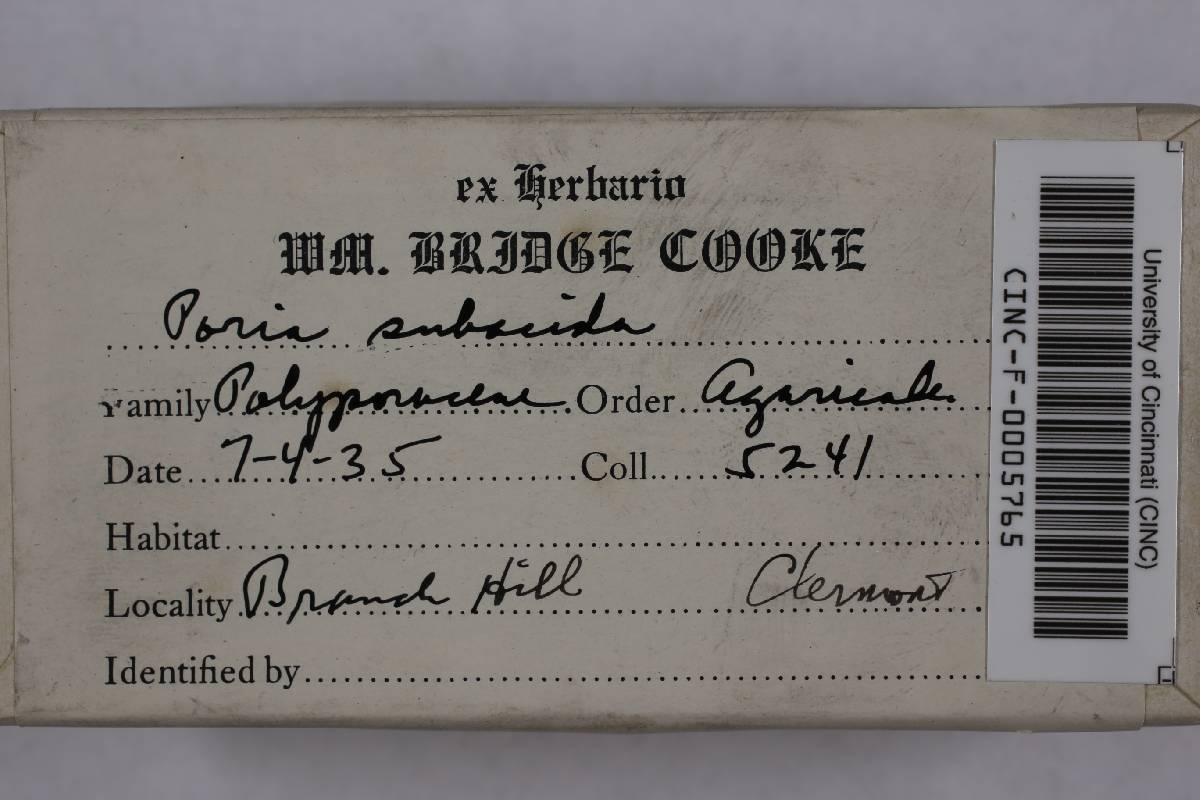 ex Herbario
WM. BRIDGE COOKE
Poria subacida
Family Polyporaceae Order Agaricales
Date 7-4-35 Coll. 5241
Habitat
Locality Branch Hill Clermont
Identified by
University of Cincinnati (CINC)
CINC-F-0005765